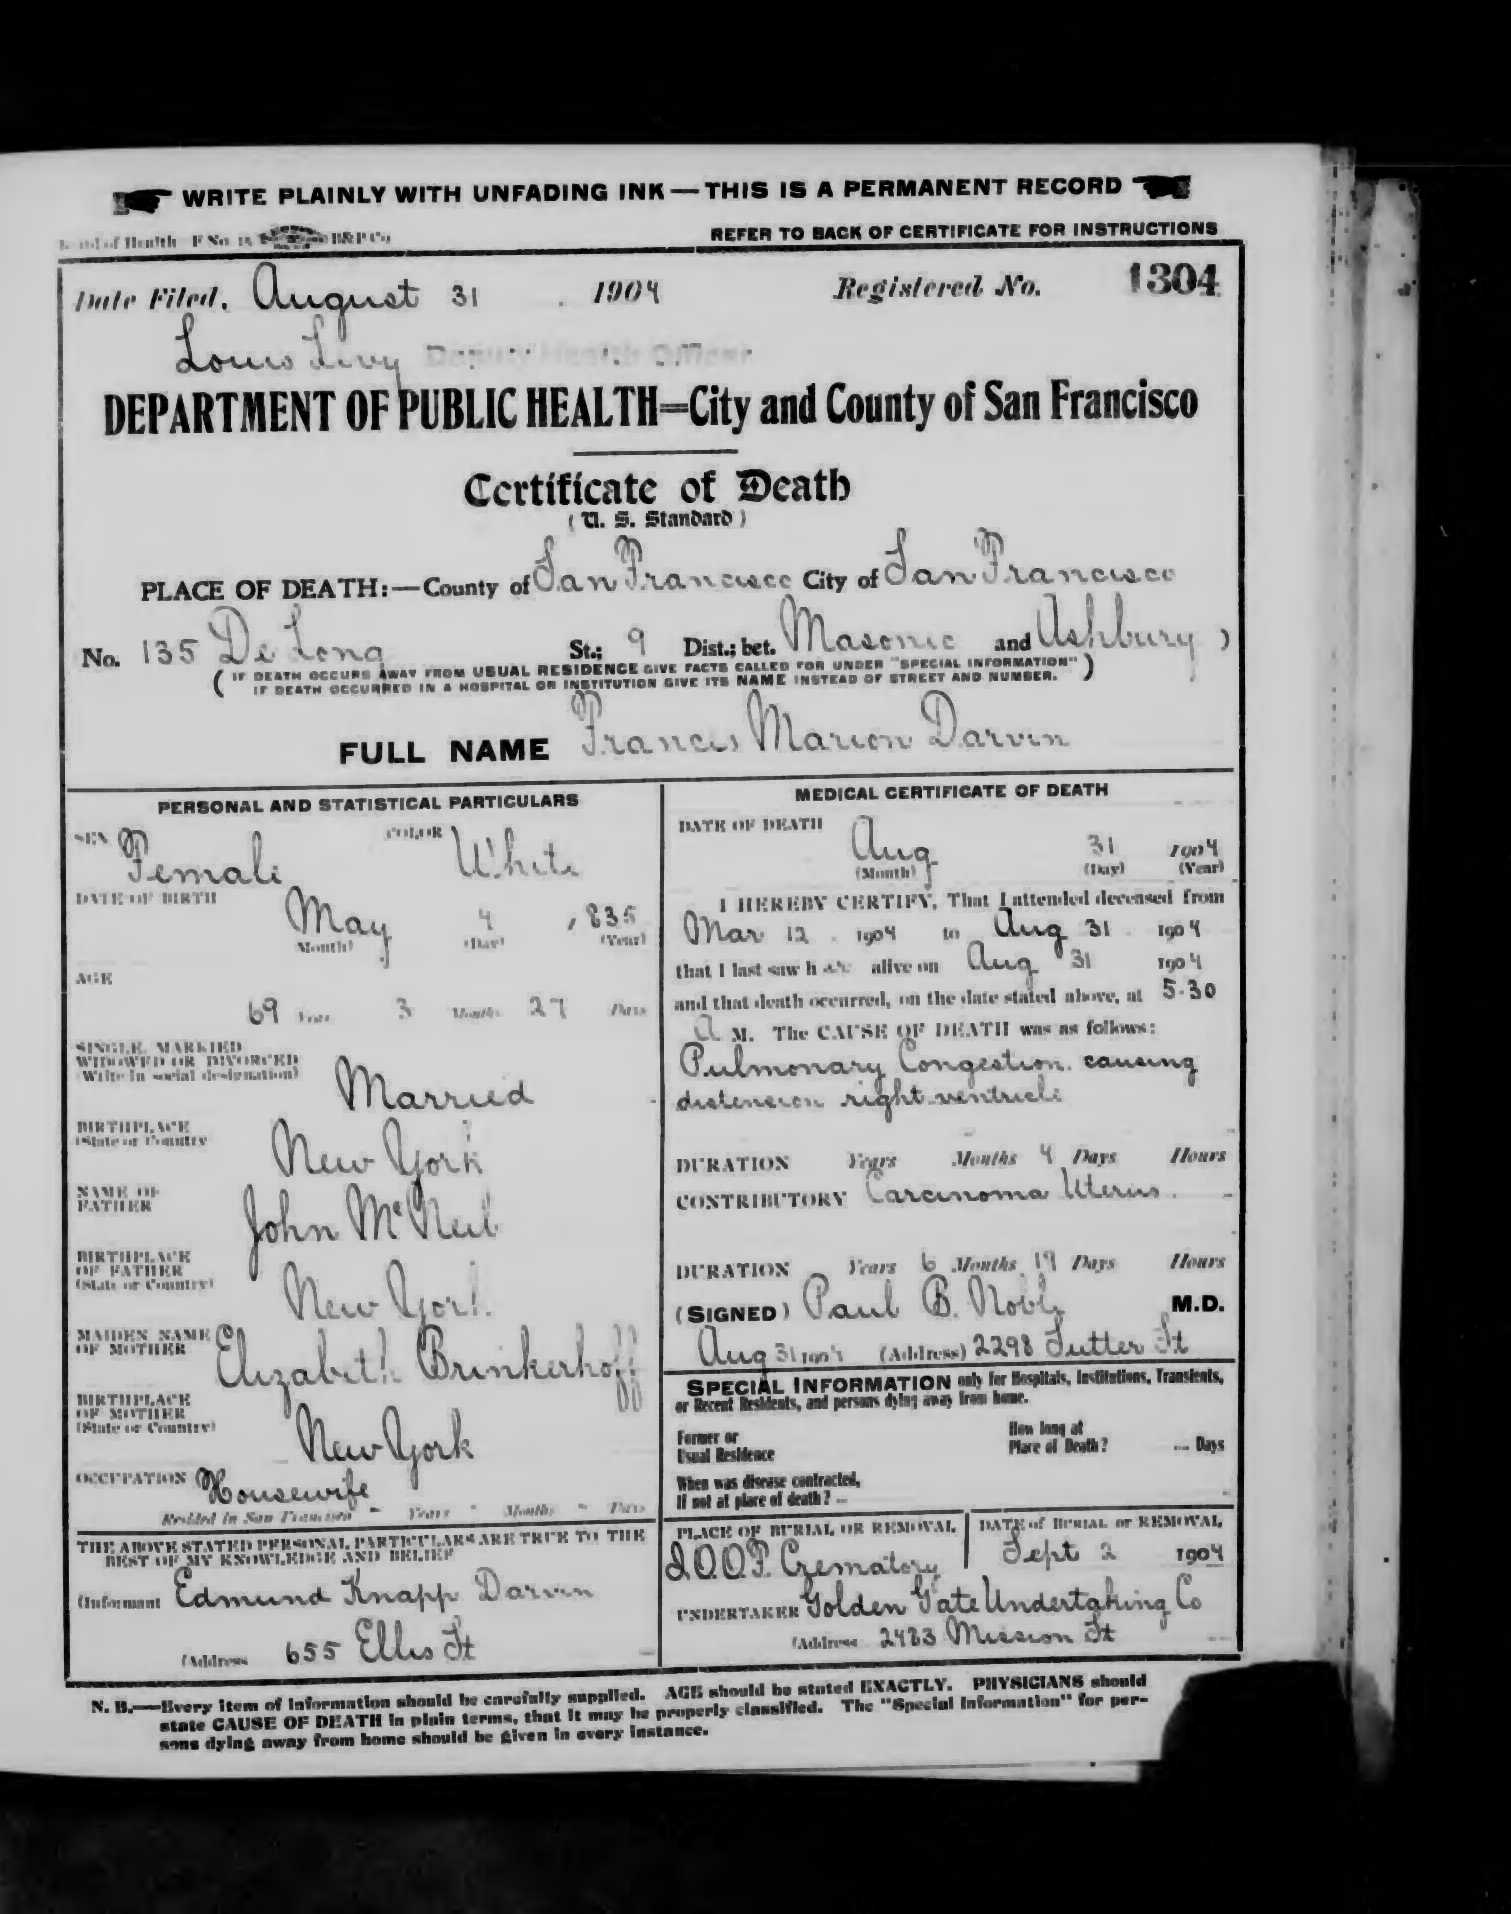 WRITE PLAINLY WITH UNFADING INK — THIS IS A PERMANENT RECORD
Board of Health F No. 15 B&P Co
REFER TO BACK OF CERTIFICATE FOR INSTRUCTIONS
Date Filed, August 31, 1904 Registered No. 1304
Louis Levy Deputy Health Officer
DEPARTMENT OF PUBLIC HEALTH=City and County of San Francisco
Certificate of Death
(U. S. Standard)
PLACE OF DEATH:—County of San Francisco City of San Francisco
No. 135 De Long St.; 9 Dist.; bet. Masonic and Ashbury )
( IF DEATH OCCURS AWAY FROM USUAL RESIDENCE GIVE FACTS CALLED FOR UNDER "SPECIAL INFORMATION" )
IF DEATH OCCURRED IN A HOSPITAL OR INSTITUTION GIVE ITS NAME INSTEAD OF STREET AND NUMBER.
FULL NAME Francis Marion Darvin
PERSONAL AND STATISTICAL PARTICULARS
SEX Female COLOR White
DATE OF BIRTH May 4 1835
(Month) (Day) (Year)
AGE
69 Years 3 Months 27 Days
SINGLE, MARRIED
WIDOWED OR DIVORCED
(Write in social designation) Married
BIRTHPLACE
(State or Country New York
NAME OF
FATHER John McNeil
BIRTHPLACE
OF FATHER
(State or Country) New York
MAIDEN NAME
OF MOTHER Elizabeth Brinkerhoff
BIRTHPLACE
OF MOTHER
(State or Country) New York
OCCUPATION Housewife
Resided in San Francisco - Years - Months - Days
THE ABOVE STATED PERSONAL PARTICULARS ARE TRUE TO THE
BEST OF MY KNOWLEDGE AND BELIEF
(Informant Edmund Knapp Darvin
(Address 655 Ellis St
MEDICAL CERTIFICATE OF DEATH
DATE OF DEATH
Aug 31 1904
(Month) (Day) (Year)
I HEREBY CERTIFY, That I attended deceased from
Mar 12 1904 to Aug 31 1904
that I last saw her alive on Aug 31 1904
and that death occurred, on the date stated above, at 5.30
A M. The CAUSE OF DEATH was as follows:
Pulmonary Congestion causing
distension right ventricle
DURATION Years Months 4 Days Hours
CONTRIBUTORY Carcinoma Uterus
DURATION Years 6 Months 19 Days Hours
(SIGNED) Paul B. Noble M.D.
Aug 31 1904 (Address) 2298 Sutter St
SPECIAL INFORMATION only for Hospitals, Institutions, Transients,
or Recent Residents, and persons dying away from home.
Former or
Usual Residence
How long at
Place of Death? .... Days
When was disease contracted,
If not at place of death?
PLACE OF BURIAL OR REMOVAL
I.O.O.F. Crematory
DATE of BURIAL or REMOVAL
Sept 2 1904
UNDERTAKER Golden Gate Undertaking Co
(Address 2483 Mission St
N. B.—Every item of information should be carefully supplied. AGE should be stated EXACTLY. PHYSICIANS should
state CAUSE OF DEATH in plain terms, that it may be properly classified. The "Special Information" for per-
sons dying away from home should be given in every instance.